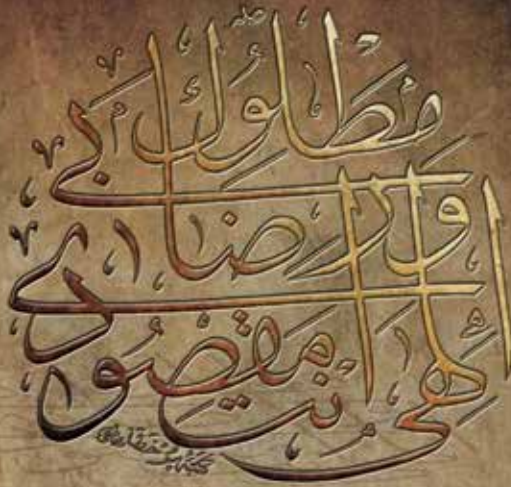 إلهي أنت مقصودي
ورضاك مطلوبي